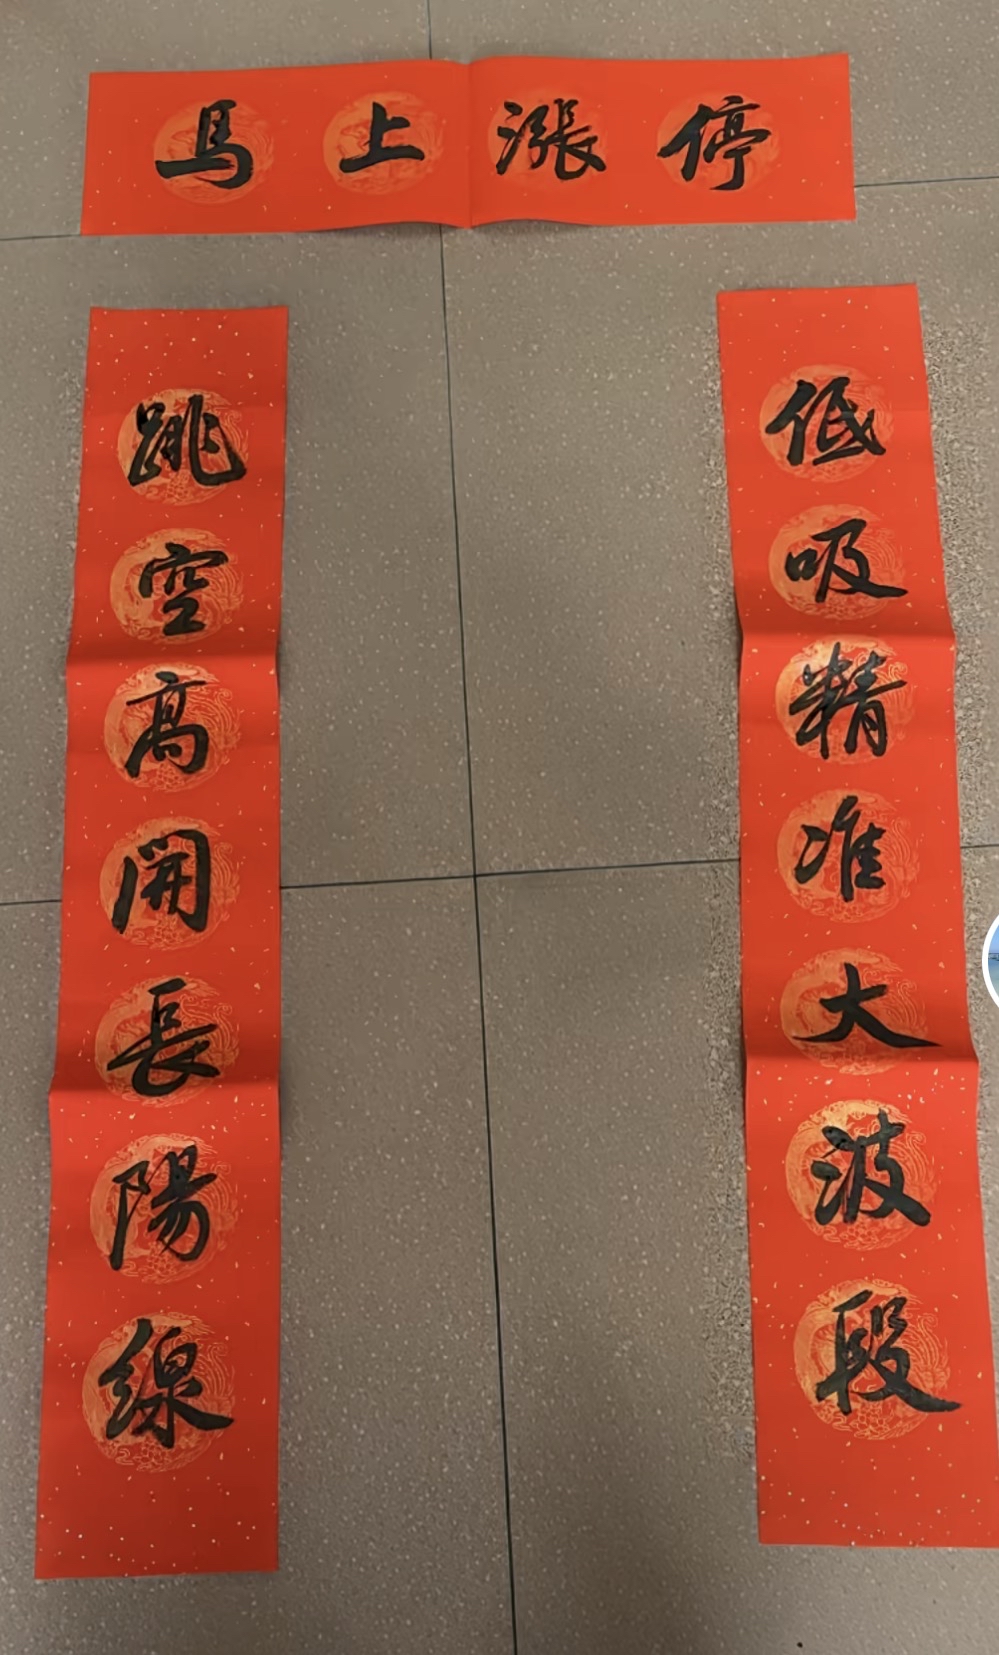 马上漲停
跳空高開長陽線
低吸精准大波段